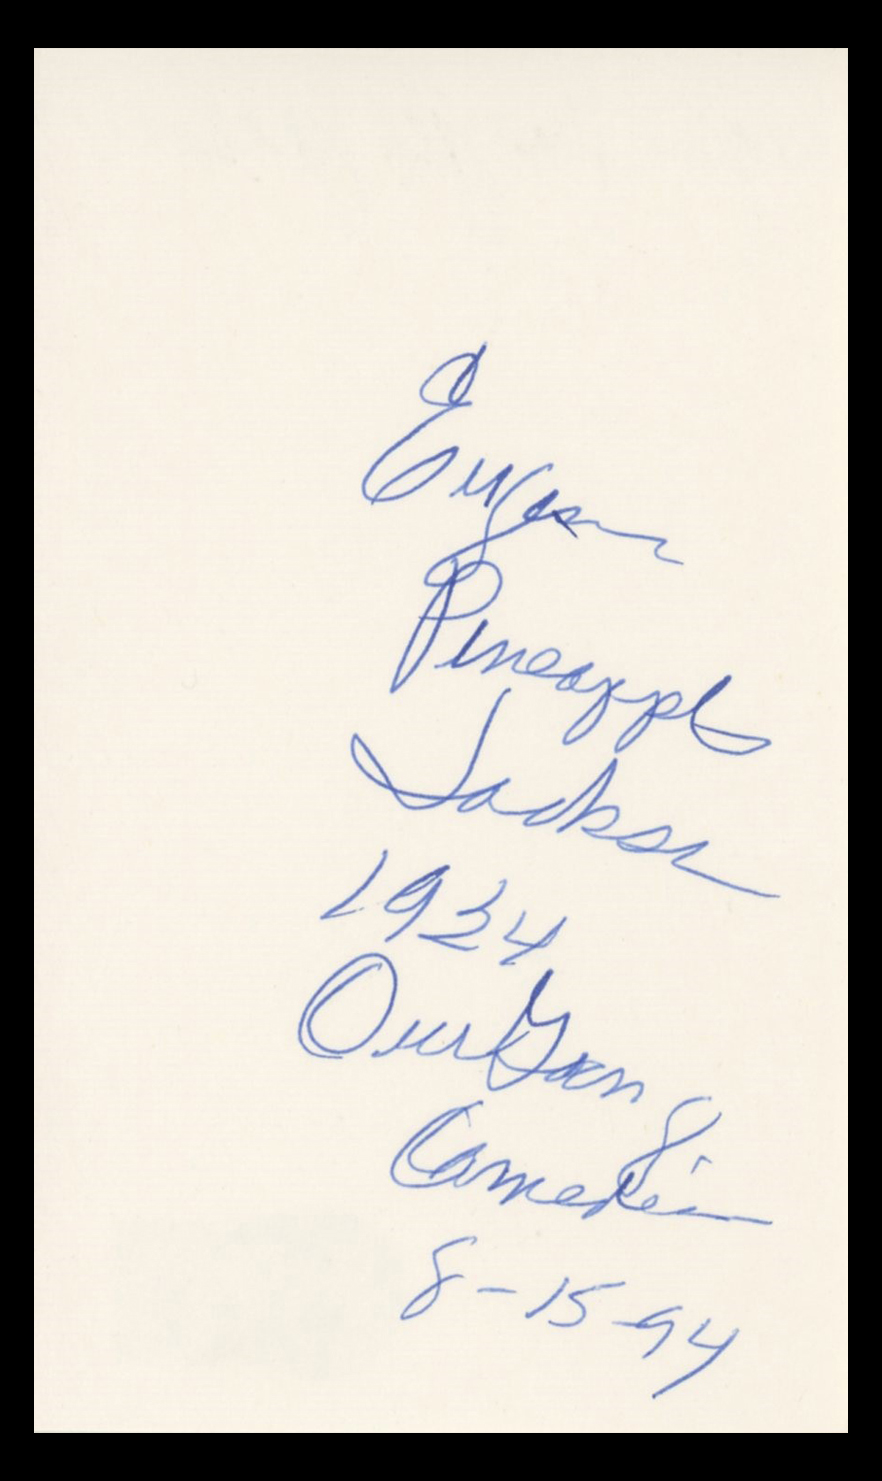 Eugene
Pineapple
Jackson
1924
Our Gang
Comedian
8-15-94